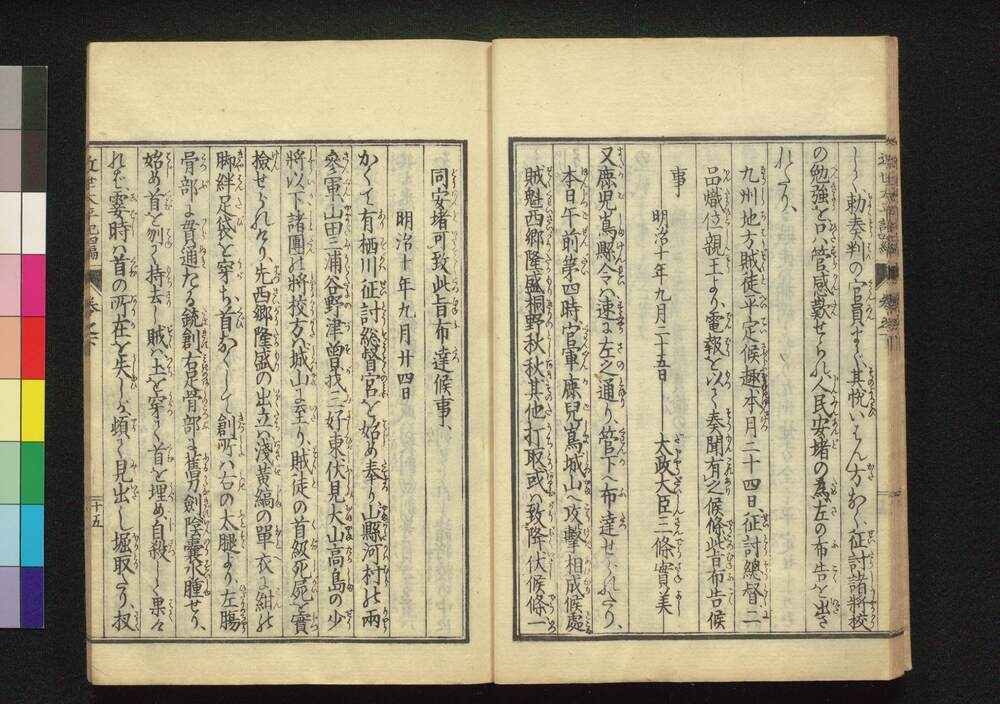 しく、勅奏判の官員まで其悦いはん方なく、征討諸將校
の勉強をバ皆感歎せられ、人民安堵の為左の布告を出さ
れたり、
九州地方賊徒平定候趣本月二十四日、征討總督、二
品熾仁親王より、電報を以て奏聞有之候條此旨布告候
事
明治十年九月二十五日
太政大臣三條實美
又鹿児島縣令ハ速に左之通り管下へ布達せられたり、
本日午前第四時官軍鹿兒島城山へ攻撃相成候處
賊魁西郷隆盛桐野秋秋其他打取或ハ致降伏候條一
同安堵可致此旨布達候事、
明治十年九月廿四日
かくて有栖川征討総督官を始め奉り山縣河村の兩
參軍山田三浦谷野津曽我三好東伏見大山高島の少
將以下諸團の將校方ハ城山に至り、賊徒の首級死屍を實
撿せられけり、先西郷隆盛の出立ハ浅黄縞の單衣に紺の
脚絆足袋を穿ち、首なくして創所ハ右の太腿より左腸
骨部に貫通たる銃創右足骨部に舊刀劍陰嚢水腫せり、
始め首を刎て持去し賊ハ土を穿て首を埋め自殺して果
れバ、霎時ハ首の所在を失しが頓て見出して堀取たり、扨
近世太平記四編
巻之六
二十五